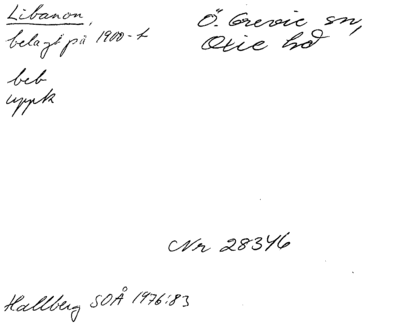 Libanon,
belagt på 1900-t
beb
uppk
Ö. Grevie sn,
Oxie hd
Nr 28346
Hallberg SOÅ 1976:83